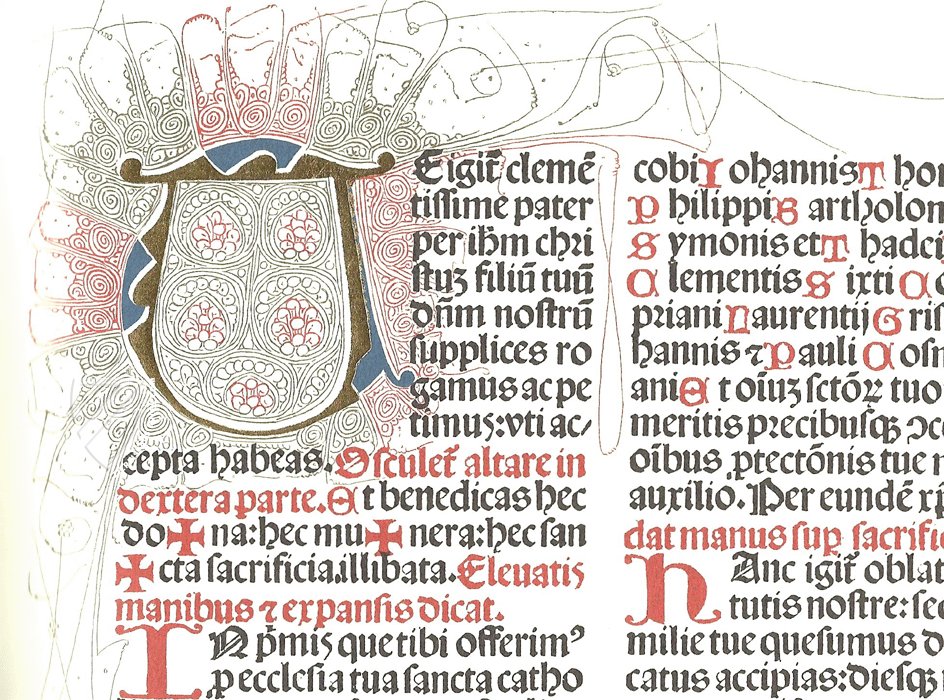 TEigit᷑ clemē
tissime pater
per ih̄m chri
stuꝫ filiū tuū
dn̄m nostrū
supplices ro
gamus ac pe
timus:vti ac/
cepta habeas. Osculet᷑ altare in
dextera parte. Et benedicas hec
do✠na:hec mu✠nera:hec san
✠cta sacrificia.illibata. Eleuatis
manibus ⁊ expansis dicat.
IN p̄mis que tibi offerimꝰ
ꝓ ecclesia tua sancta catho
cobi Iohannis T ho
Philippi Bartholo
Symonis et T hadei
Clementis Sixti C
priani Laurentij Gri
hannis ⁊ Pauli Cos
ani Et oīuꝫ sctōꝝ tuo
meritis precibusqꝫ ↄc
oībus ꝓtectōnis tue
auxilio. Per eundē xp̄
dat manus suꝑ sacrifi
HAnc igit᷑ oblat
tutis nostre:sed
milie tue quesumus d
catus accipias:diesqꝫ